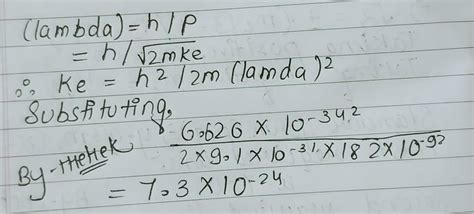 (lambda) = h/P
= h/√2mke
∴ Ke = h²/2m (lamda)²
Substituting,
6.626 × 10⁻³⁴·²
2×9.1×10⁻³¹×182×10⁻⁹²
By-
= 7.3 × 10⁻²⁴